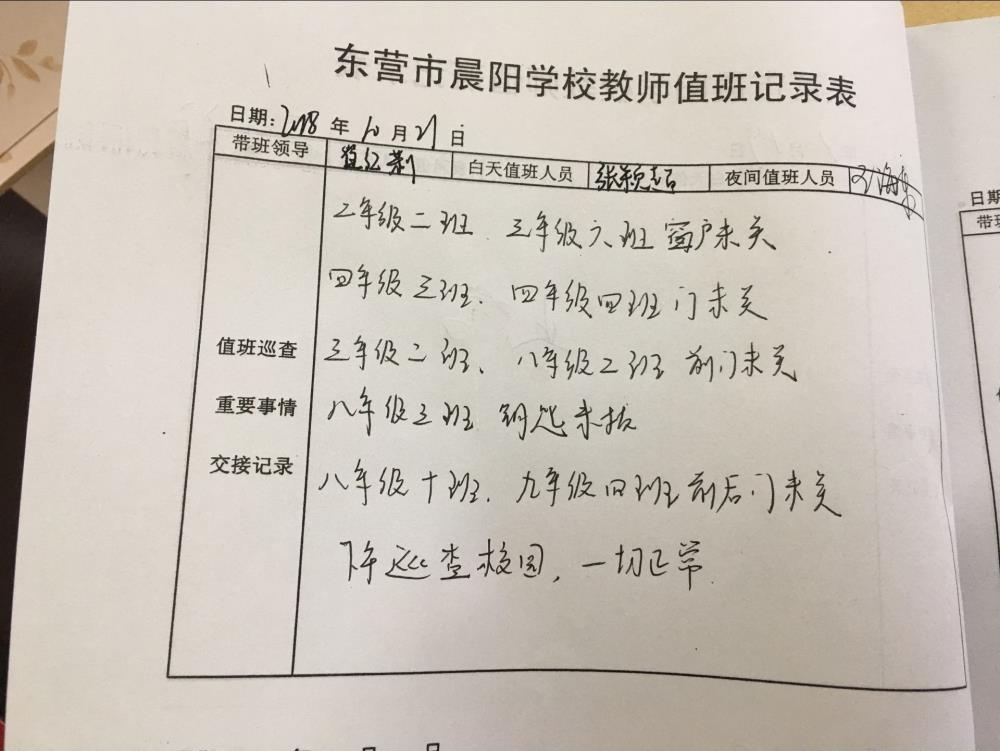 东营市晨阳学校教师值班记录表
日期：2018 年 10 月 21 日
带班领导 白天值班人员 张颖超 夜间值班人员
二年级二班、三年级六班窗户未关
四年级三班、四年级四班门未关
值班巡查 三年级二班、八年级二班前门未关
重要事情 八年级三班 钥匙未拔
交接记录 八年级十班、九年级四班前后门未关
下午巡查校园，一切正常
日期
带班